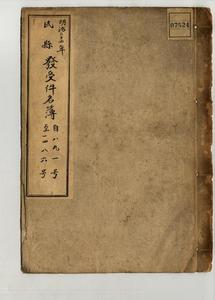 明治三十年
民縣發受件名簿
自八九一号
至一四八六号
07524